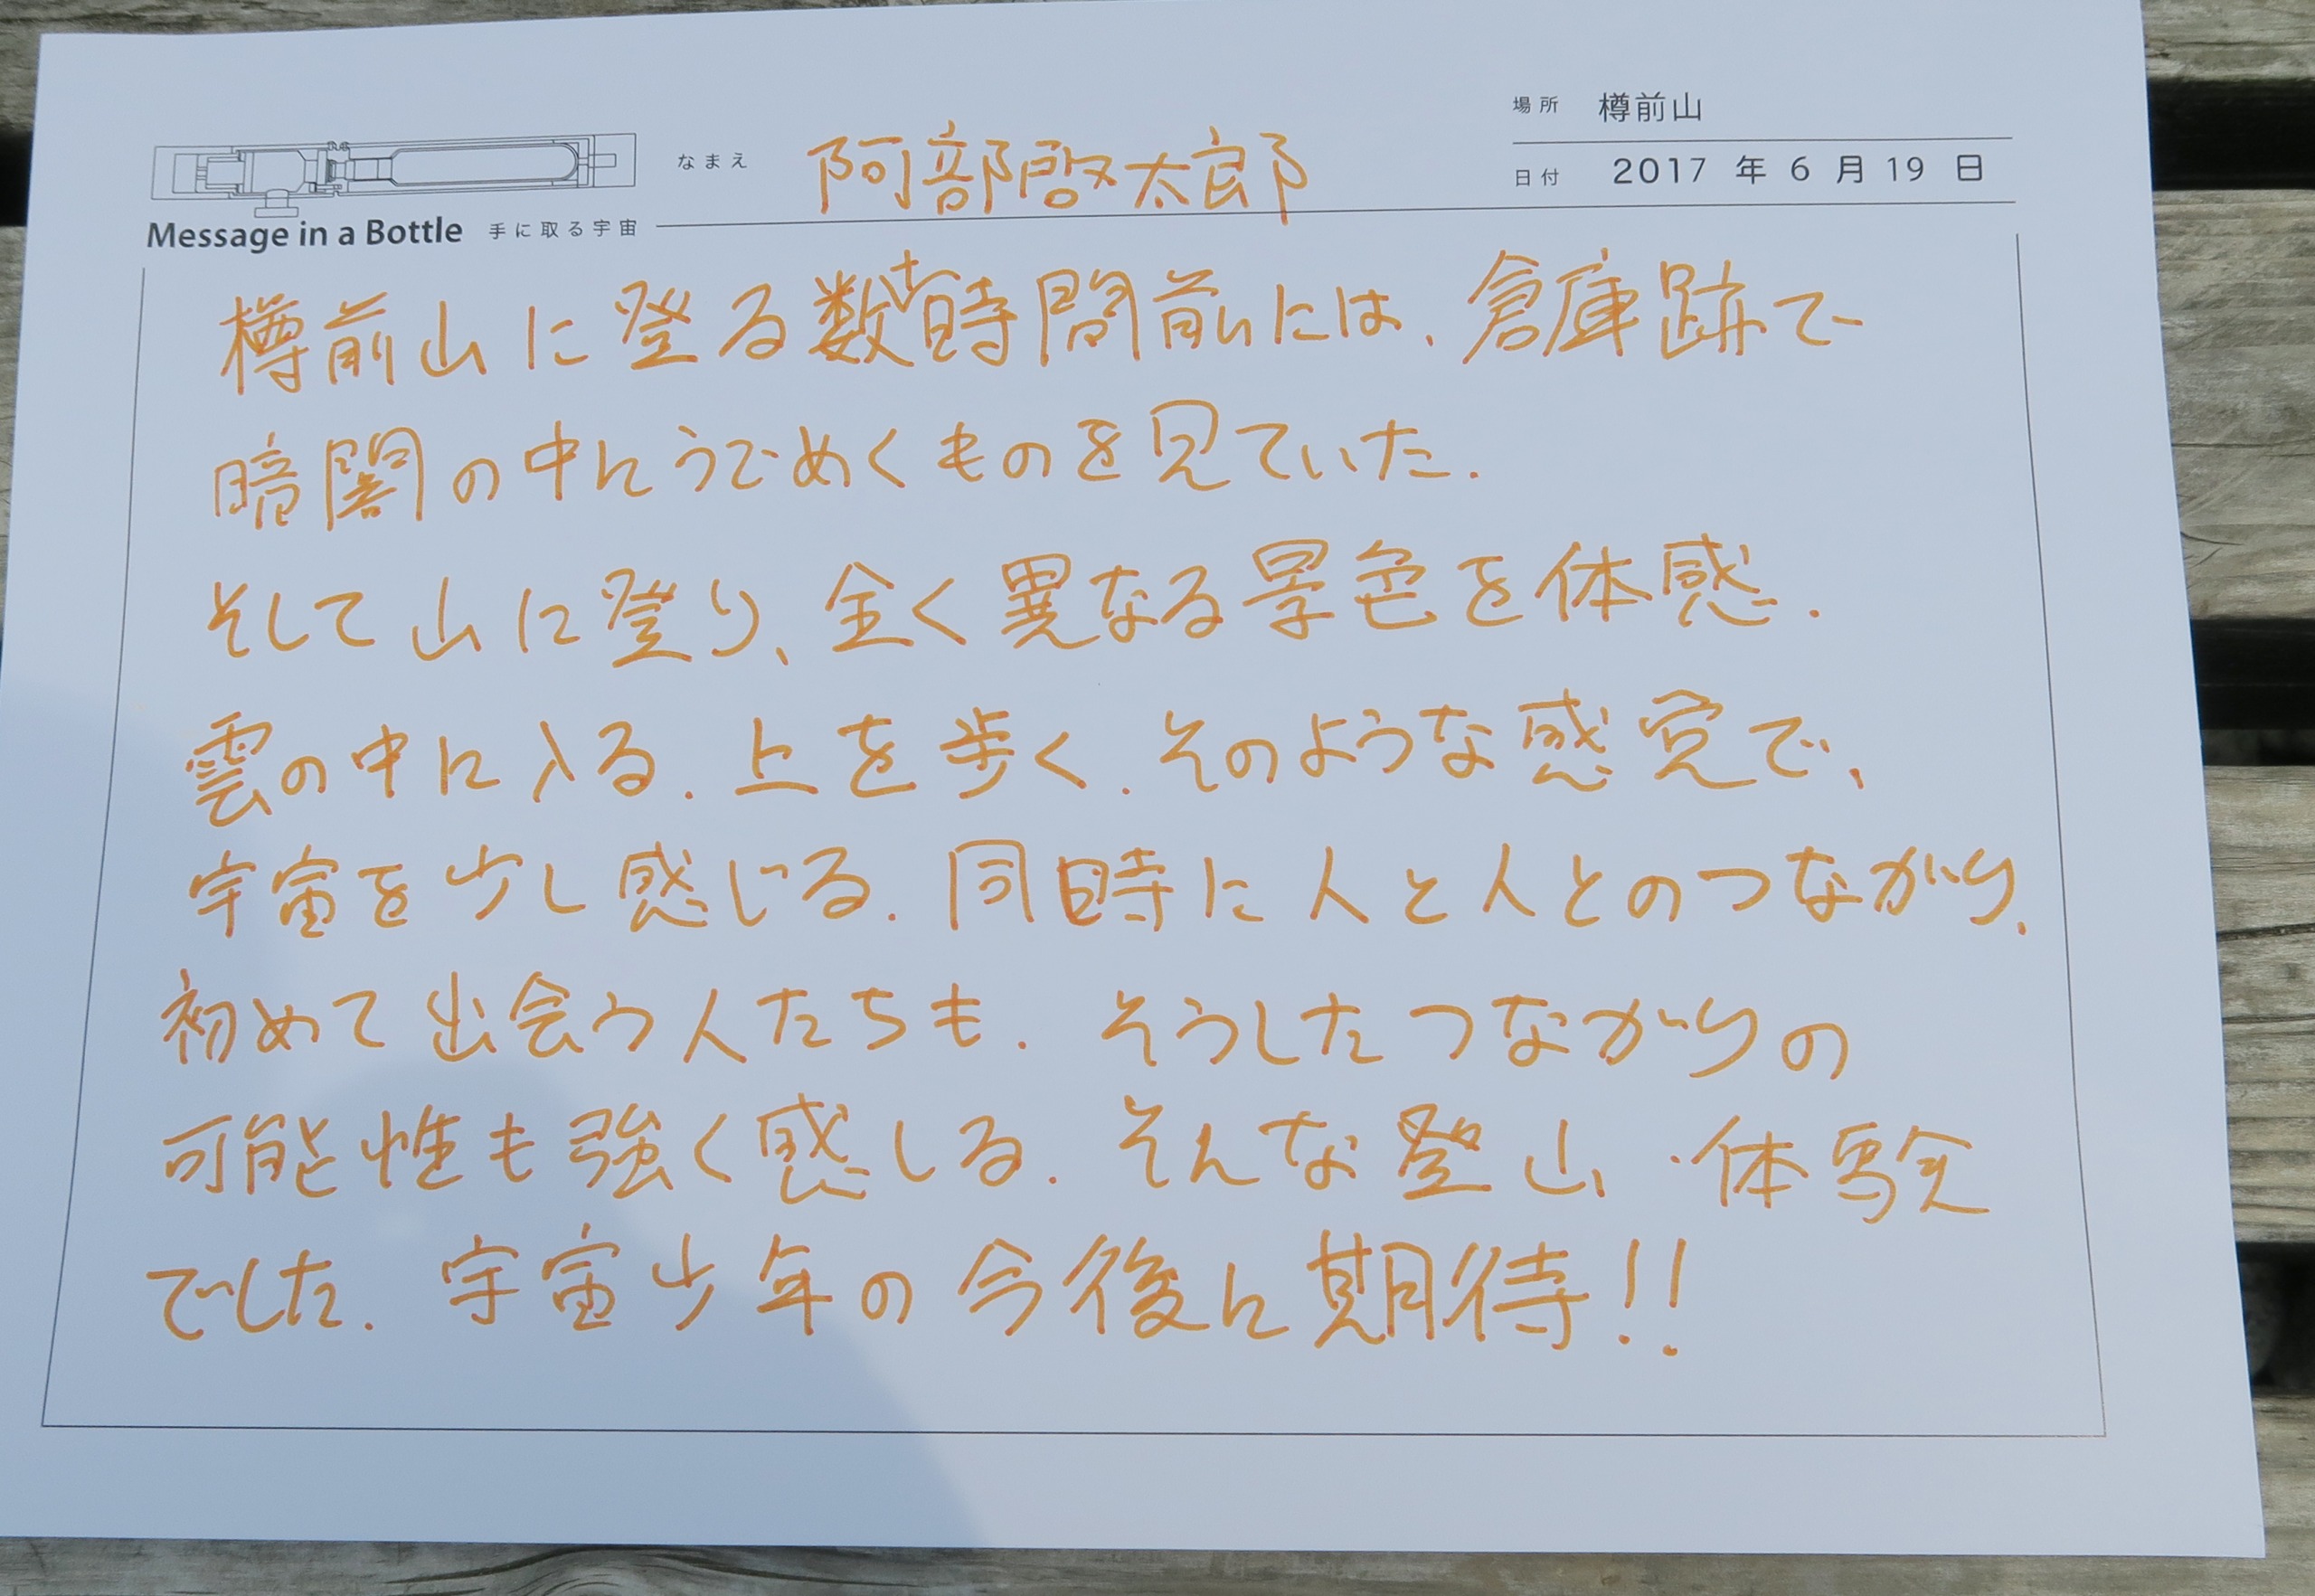 場所 樽前山
なまえ 阿部啓太郎
日付 2017 年 6 月 19 日
Message in a Bottle 手に取る宇宙
樽前山に登る数十時間前には、倉庫跡で
暗闇の中にうごめくものを見ていた.
そして山に登り、全く異なる景色を体感.
雲の中に入る. 上を歩く. そのような感覚で、
宇宙を少し感じる. 同時に人と人とのつながり、
初めて出会う人たちも. そうしたつながりの
可能性も強く感じる. そんな登山・体験
でした. 宇宙少年の今後に期待!!